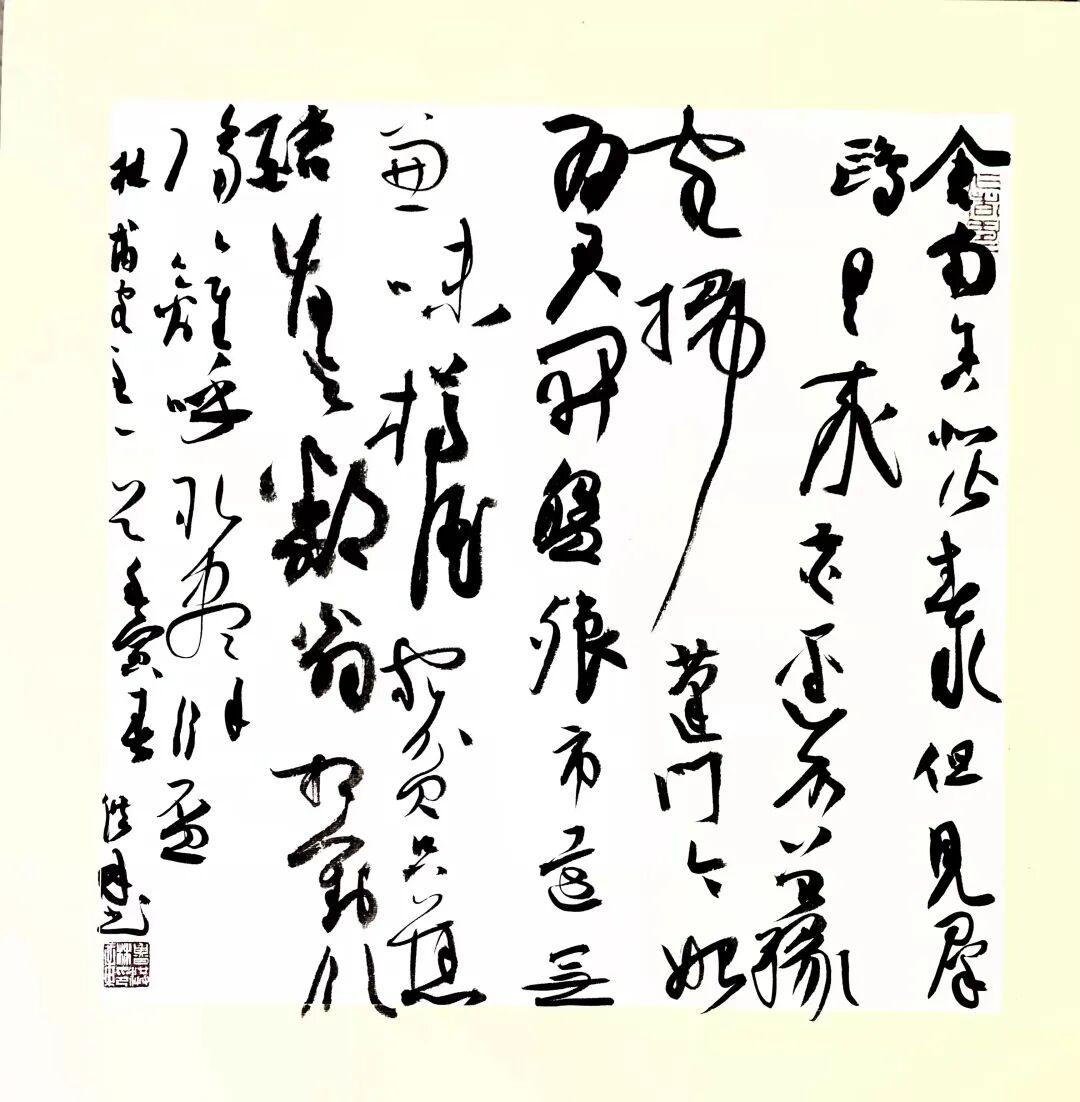 舍南舍北皆春水但見群
鷗日日來花徑不曾緣
客掃蓬門今始
為君開盤飧市遠無
兼味樽酒家貧只舊
醅肯與鄰翁相對飲
隔籬呼取盡餘杯
杜甫客至一首壬寅春